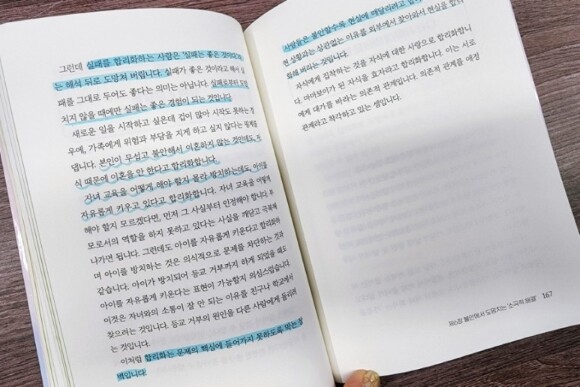 그런데 실패를 합리화하는 사람은 '실패는 좋은 것이다'라
는 해석 뒤로 도망쳐 버립니다. 실패가 좋은 것이라고 해서 실
패를 그대로 두어도 좋다는 의미는 아닙니다. 실패로부터 도망
치지 않을 때에만 실패는 좋은 경험이 되는 것입니다.
새로운 일을 시작하고 싶은데 겁이 많아 시작도 못하는 경
우에, 가족에게 위험과 부담을 지게 하고 싶지 않다는 핑계를
댑니다. 본인이 무섭고 불안해서 이혼하지 않는 것인데도, 자
식 때문에 이혼을 안 한다고 합리화합니다.
자녀 교육을 어떻게 해야 할지 몰라 방치하는데도, 아이를
자유롭게 키우고 있다고 합리화합니다. 자녀 교육을 어떻게
해야 할지 모르겠다면, 먼저 그 사실부터 인정해야 합니다. 후
모로서의 역할을 하지 못하고 있다는 사실을 깨닫고 극복해
나가면 됩니다. 그런데도 아이를 자유롭게 키운다고 합리화하
며 아이를 방치하는 것은 의식적으로 문제를 차단하는 것과
같습니다. 아이가 방치되어 등교 거부까지 하게 되었을 때도
아이를 자유롭게 키운다는 표현이 가능할지 의심스럽습니다.
이것은 자녀와의 소통이 잘 안 되는 이유를 친구나 학교에서
찾으려는 것입니다. 등교 거부의 원인을 다른 사람에게 돌리려
는 것입니다.
이처럼 합리화는 문제의 핵심에 들어가지 못하도록 막는 장
벽입니다.
사람들은 불안할수록 현실에 매달리려고
현 상황과는 상관없는 이유를 외부에서 찾아와서 현실을 합리
화해 버리는 것입니다.
자식에게 집착하는 것을 자식에 대한 사랑으로 합리화합니
다. 마마보이가 된 자식을 효자라고 합리화합니다. 이는 서로
에게 대가를 바라는 의존적 관계입니다. 의존적 관계를 애정
관계라고 착각하고 있는 셈입니다.
불안에서 도망치는 '소극적 해결' 167